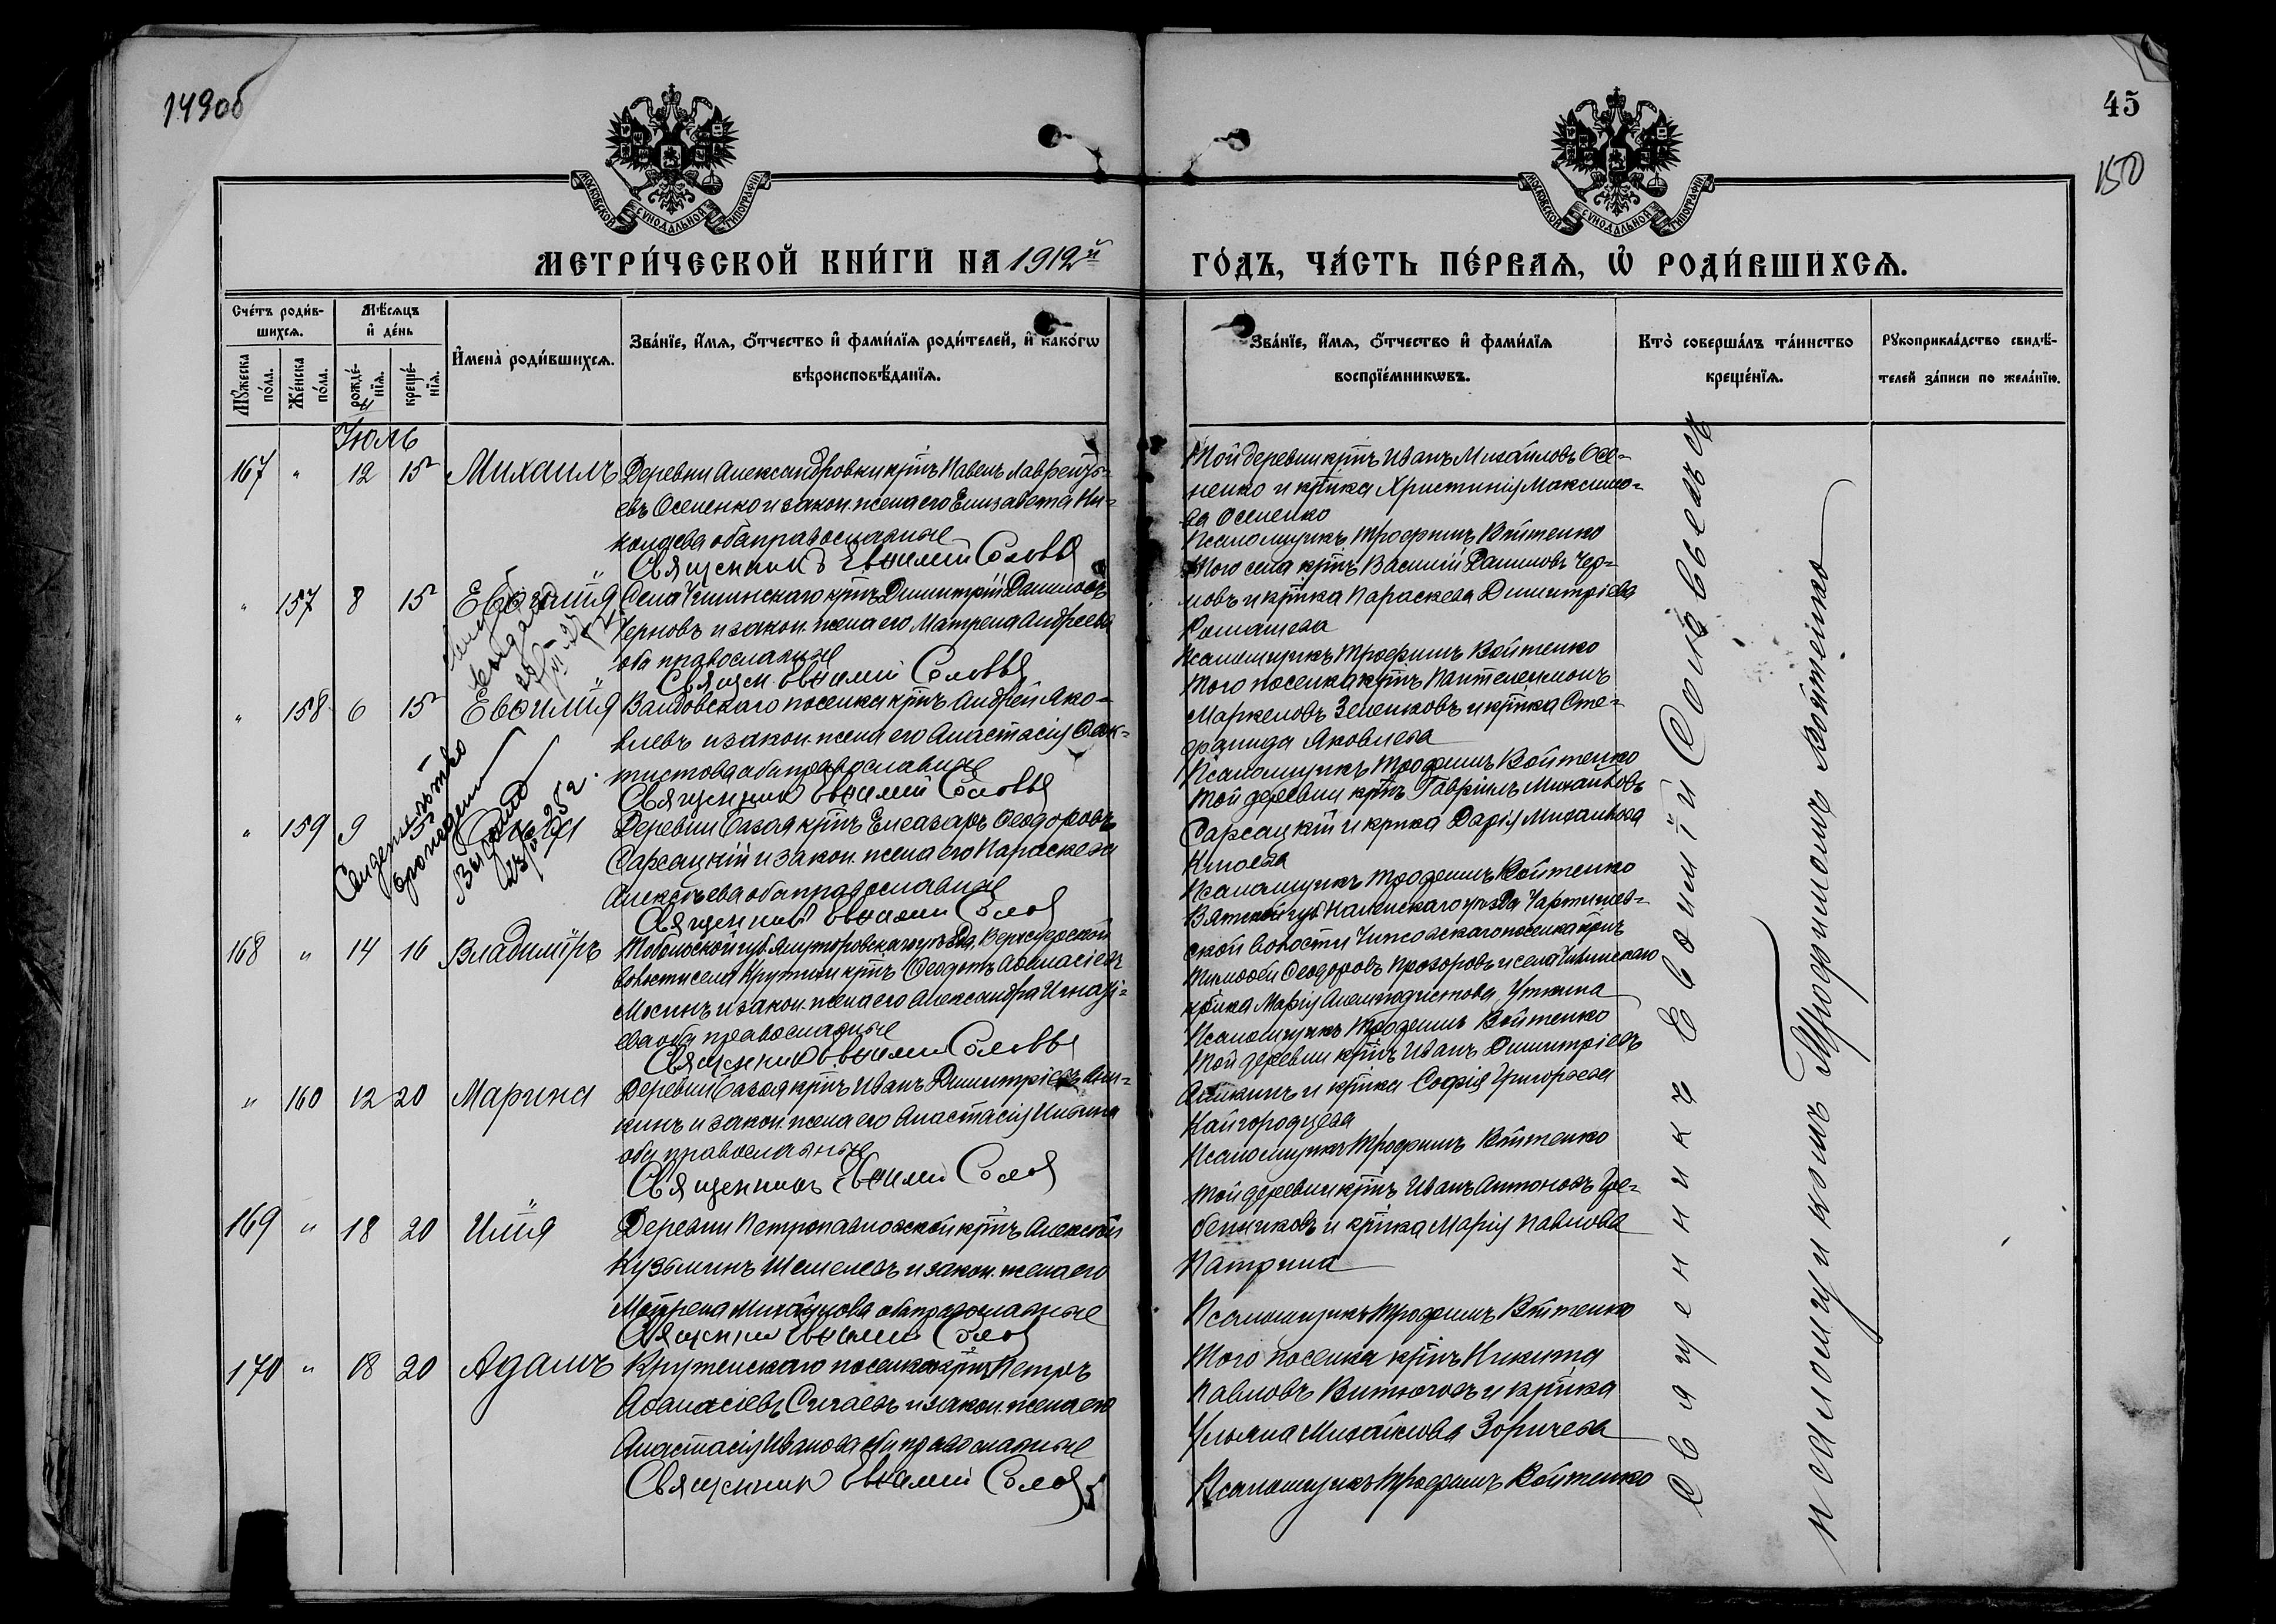 149об
45
150
МОСКОВСКОЙ СѴНОДАЛЬНОЙ ТИПОГРАФІИ
МОСКОВСКОЙ СѴНОДАЛЬНОЙ ТИПОГРАФІИ
МЕТРИ́ЧЕСКОЙ КНИ́ГИ НА 1912й
ГО́ДЪ, ЧА́СТЬ ПЕ́РВАЯ, Ѡ РОДИ́ВШИХСЯ.
Сче́тъ роди́в-
шихся.
Мѣ́сяцъ
и де́нь
Му́жеска по́ла.
Же́нска по́ла.
рожде́-нїя.
креще́-нїя.
Имена̀ роди́вшихся.
Зва́нїе, и́мя, о́тчество и фами́лїя роди́телей, и како́гѡ
вѣроисповѣ́данїя.
Зва́нїе, и́мя, о́тчество и фами́лїя
воспрїе́мникѡвъ.
Кто̀ соверша́лъ та́инство
креще́нїя.
Рукоприкла́дство свидѣ́-
телей за́писи по жела́нїю.
Іюль
167 " 12 15 Михаилъ
Деревни Александровки крнъ Павелъ Лавренть-
евъ Осененко и закон. жена его Елизавета Ни-
колаева оба православные
Священникъ Евѳимій Соловьевъ
Той деревни крнъ Иванъ Михайловъ Осе-
ненко и крнка Христинія Максимо-
ва Осененко
Псаломщикъ Трофимъ Войтенко
" 157 8 15 Евѳимія
Села Чишинскаго крнъ Димитрій Даниловъ
Черновъ и закон. жена его Матрена Андреева
оба православные
Священ. Евѳимій Соловьевъ
Того села крнъ Василій Даниловъ Чер-
новъ и крнка Параскева Димитріева
Ромашева
Псаломщикъ Трофимъ Войтенко
" 158 6 15 Евѳимія
поселка крнъ Андрей Яко-
влевъ и закон. жена его Анастасія Ѳеок-
тистова оба православные
Священникъ Евѳимій Соловьевъ
Того поселка крнъ Пантелеимонъ
Маркеловъ Зеленковъ и крнка Сте-
фанида Яковлева
Псаломщикъ Трофимъ Войтенко
" 159 9 15
Свидетельство
Выдано
Деревни крнъ Елеазаръ Ѳеодоровъ
Сарсацкій и закон. жена его Параскева
Алексѣева оба православные
Священникъ Евѳимій Соловьевъ
Той деревни крнъ Гавріилъ Михайловъ
Сарсацкій и крнка Дарія Михайлова
Псаломщикъ Трофимъ Войтенко
168 " 14 16 Владиміръ
Тобольской губ. Ялуторовскаго уѣзда,
волости села крнъ Ѳеодотъ Аѳанасіевъ
Мосинъ и закон. жена его Александра Игнаті-
ева оба православные
Священникъ Евѳимій Соловьевъ
Вятской губ. уѣзда
ской волости поселка крнъ
Тимоѳей Ѳеодоровъ Прозоровъ и села Чишинскаго
крнка Марія Уткина
Псаломщикъ Трофимъ Войтенко
" 160 12 20 Марина
Деревни крнъ Иванъ Димитріевъ Ани-
кинъ и закон. жена его Анастасія Ильина
оба православные
Священникъ Евѳимій Соловьевъ
Той деревни крнъ Иванъ Димитріевъ
Аникинъ и крнка Софія Григорьева
Кайгородцева
Псаломщикъ Трофимъ Войтенко
169 " 18 20 Илія
Деревни Петропавловской крнъ Алексѣй
Кузьминъ Шемелевъ и закон. жена его
Матрена Михайлова оба православные
Священникъ Евѳимій Соловьевъ
Той деревни крнъ Иванъ Антоновъ Гре-
бенниковъ и крнка Марія Павлова
Патрина
Псаломщикъ Трофимъ Войтенко
170 " 18 20 Адамъ
Крутенскаго поселка крнъ Петръ
Аѳанасіевъ Сигаевъ и закон. жена его
Анастасія Иванова оба православные
Священникъ Евѳимій Соловьевъ
Того поселка крнъ Никита
Павловъ Витюговъ и крнка
Ульяна Михайлова Зоричева
Псаломщикъ Трофимъ Войтенко
Священникъ Евѳимій Соловьевъ
псаломщикомъ Трофимомъ Войтенко